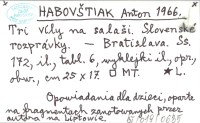 HABOVŠTIAK Anton 1966.
Tri víly na salaši. Slovenské
rozprávky. — Bratislava. Ss.
172, il., tabl. 6, wyklejki il., opr.,
obw., cm 25 x 17. □ MT. ★ L.
Opowiadania dla dzieci, oparte
na fragmentach zanotowanych przez
autora na Liptowie.